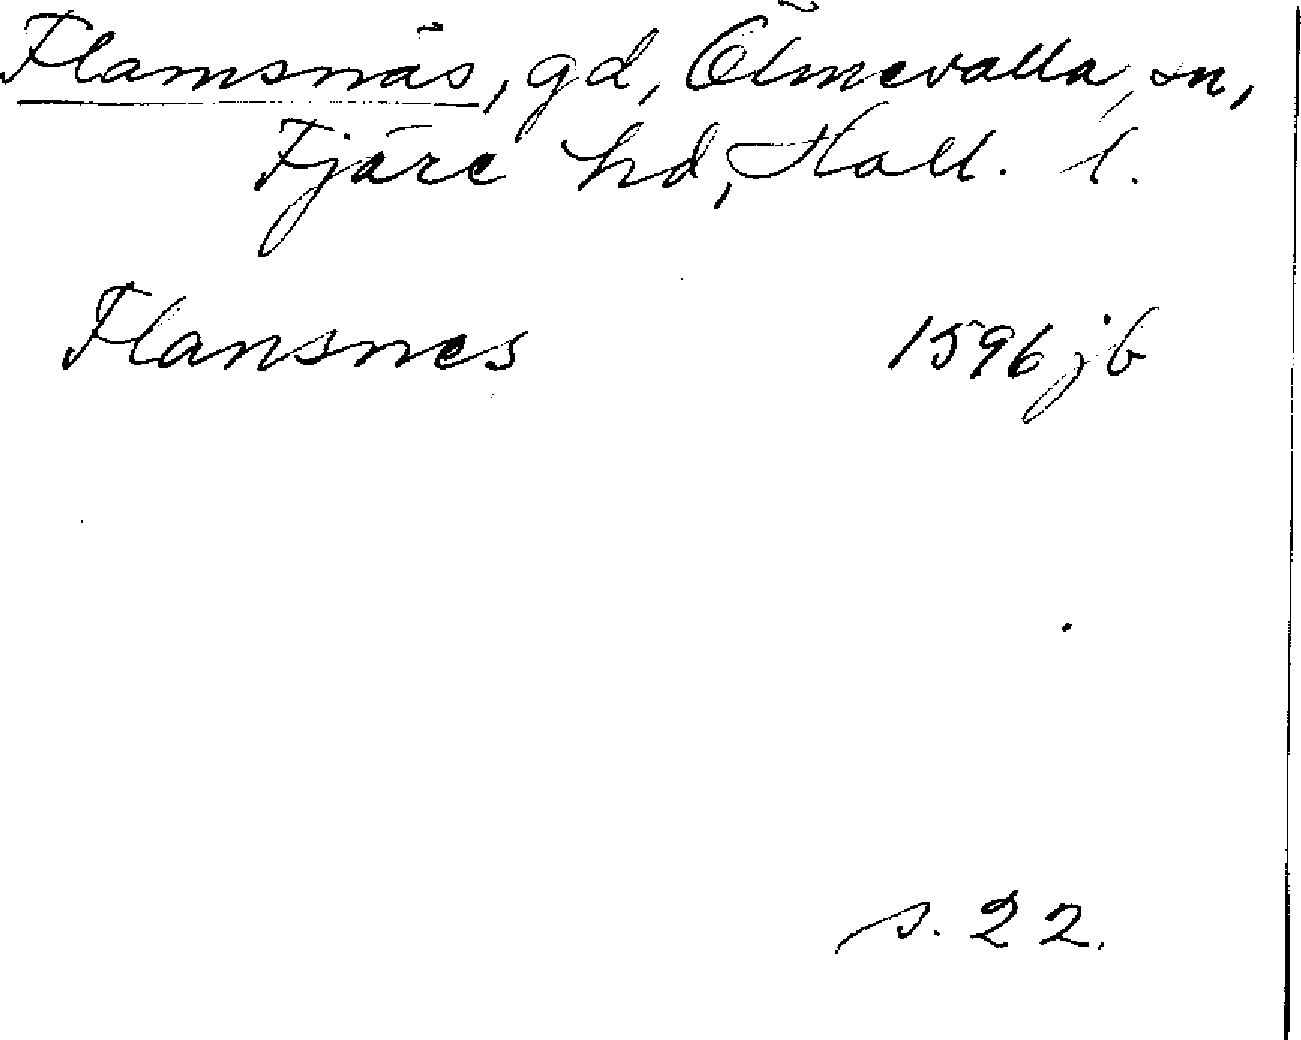 Flamsnäs, gd, Ölmevalla, sn,
Fjäre hd, Hall. l.
Flansnes 1596 jb
s. 22.